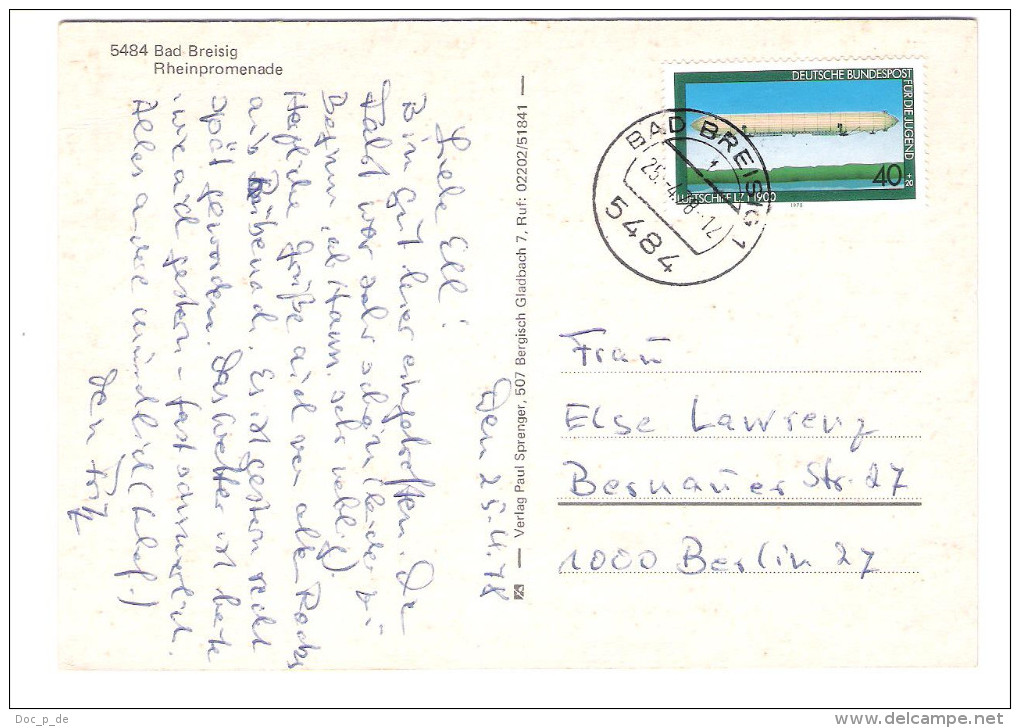 5484 Bad Breisig
Rheinpromenade
DEUTSCHE BUNDESPOST
FÜR DIE JUGEND
40
+20
LUFTSCHIFF LZ 1 1900
1978
BAD BREISIG 1
25.-4.78-12
5484
Verlag Paul Sprenger, 507 Bergisch Gladbach 7, Ruf: 02202/51841
Den 25.4.78
Liebe Ell!
Bin gut hier eingetroffen. Die
Fahrt war sehr schön (leider zu
Beginn, ab Hann. sehr neblig).
Herzliche Grüße auch von allen
aus. Es ist gestern recht
spät geworden. Das Wetter ist heute
wie auch gestern - fast sommerlich.
Alles andere mündlich
Dein Fritz
Frau
Else Lawrenz
Bernauer Str. 27
1000 Berlin 27
Doc_p_de
www.delcampe.net